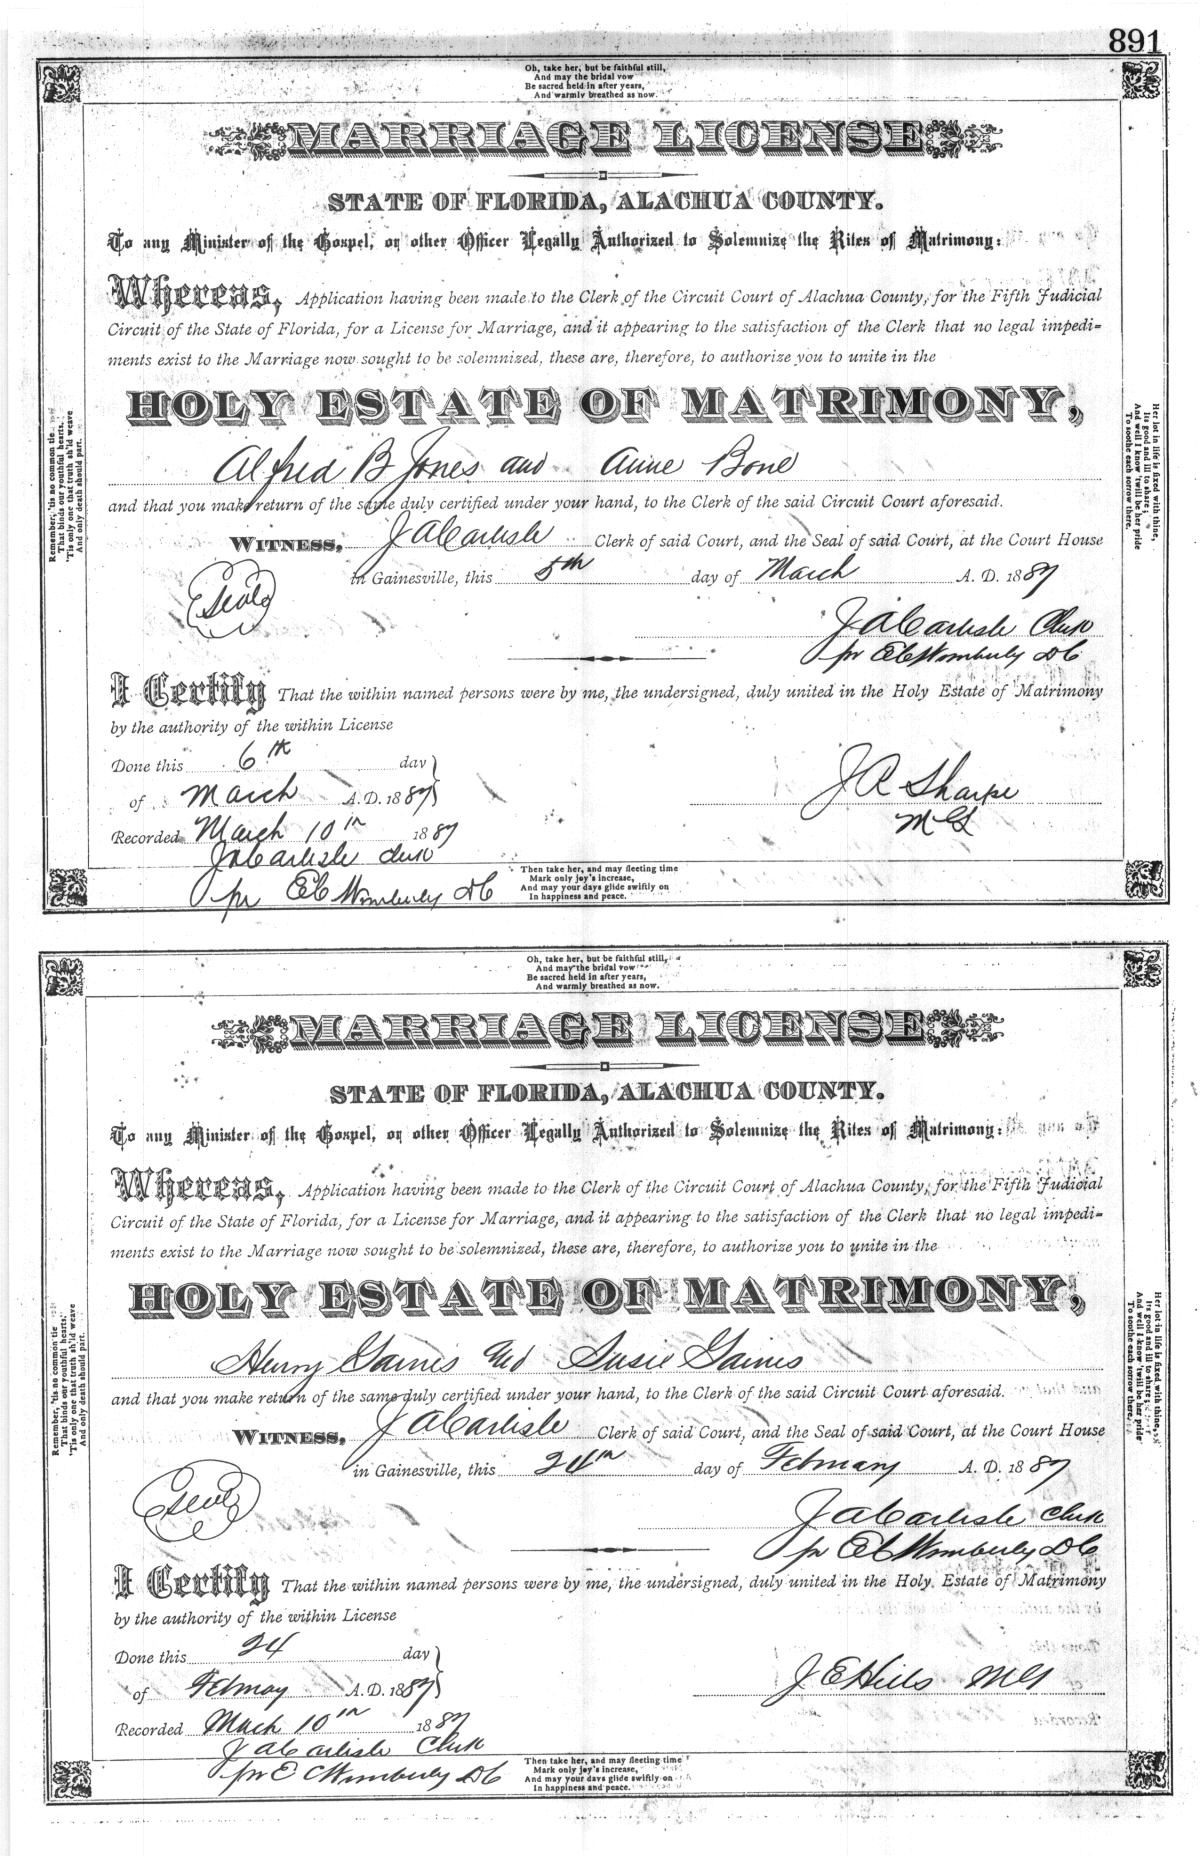 891
Oh, take her, but be faithful still,
And may the bridal vow
Be sacred held in after years,
And warmly breathed as now.
MARRIAGE LICENSE
STATE OF FLORIDA, ALACHUA COUNTY.
To any Minister of the Gospel, or other Officer Legally Authorized to Solemnize the Rites of Matrimony:
Whereas, Application having been made to the Clerk of the Circuit Court of Alachua County, for the Fifth Judicial
Circuit of the State of Florida, for a License for Marriage, and it appearing to the satisfaction of the Clerk that no legal impedi=
ments exist to the Marriage now sought to be solemnized, these are, therefore, to authorize you to unite in the
HOLY ESTATE OF MATRIMONY,
Alfred B Jones and Anne Bone
and that you make return of the same duly certified under your hand, to the Clerk of the said Circuit Court aforesaid.
WITNESS, J A Carlisle Clerk of said Court, and the Seal of said Court, at the Court House
in Gainesville, this 5th day of March A. D. 1887
Seal
J A Carlisle Clerk
pr E C Wimberly D C
I Certify That the within named persons were by me, the undersigned, duly united in the Holy Estate of Matrimony
by the authority of the within License
Done this 6th day
of March A. D. 1887
J R Sharpe
M G
Recorded March 10th 1887
J A Carlisle Clerk
pr E C Wimberly D C
Then take her, and may fleeting time
Mark only joy's increase,
And may your days glide swiftly on
In happiness and peace.
Remember, 'tis no common tie
That binds our youthful hearts,
'Tis only one that truth sh'ld weave
And only death should part.
Her lot in life is fixed with thine,
Its good and ill to share;
And well I know 'twill be her pride
To soothe each sorrow there.
Oh, take her, but be faithful still,
And may the bridal vow
Be sacred held in after years,
And warmly breathed as now.
MARRIAGE LICENSE
STATE OF FLORIDA, ALACHUA COUNTY.
To any Minister of the Gospel, or other Officer Legally Authorized to Solemnize the Rites of Matrimony:
Whereas, Application having been made to the Clerk of the Circuit Court of Alachua County, for the Fifth Judicial
Circuit of the State of Florida, for a License for Marriage, and it appearing to the satisfaction of the Clerk that no legal impedi=
ments exist to the Marriage now sought to be solemnized, these are, therefore, to authorize you to unite in the
HOLY ESTATE OF MATRIMONY,
Henry Gaines and Susie Gaines
and that you make return of the same duly certified under your hand, to the Clerk of the said Circuit Court aforesaid.
WITNESS, J A Carlisle Clerk of said Court, and the Seal of said Court, at the Court House
in Gainesville, this 24th day of February A. D. 1887
Seal
J A Carlisle Clerk
pr E C Wimberly D C
I Certify That the within named persons were by me, the undersigned, duly united in the Holy Estate of Matrimony
by the authority of the within License
Done this 24 day
of Februay A. D. 1887
J E Hills M G
Recorded March 10th 1887
J A Carlisle Clerk
pr E C Wimberly D C
Then take her, and may fleeting time
Mark only joy's increase,
And may your days glide swiftly on
In happiness and peace.
Remember, 'tis no common tie
That binds our youthful hearts,
'Tis only one that truth sh'ld weave
And only death should part.
Her lot in life is fixed with thine,
Its good and ill to share;
And well I know 'twill be her pride
To soothe each sorrow there.